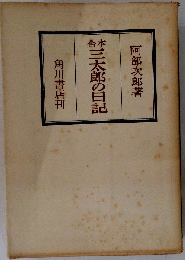 阿部次郎著
合本
三太郎の日記
角川書店刊